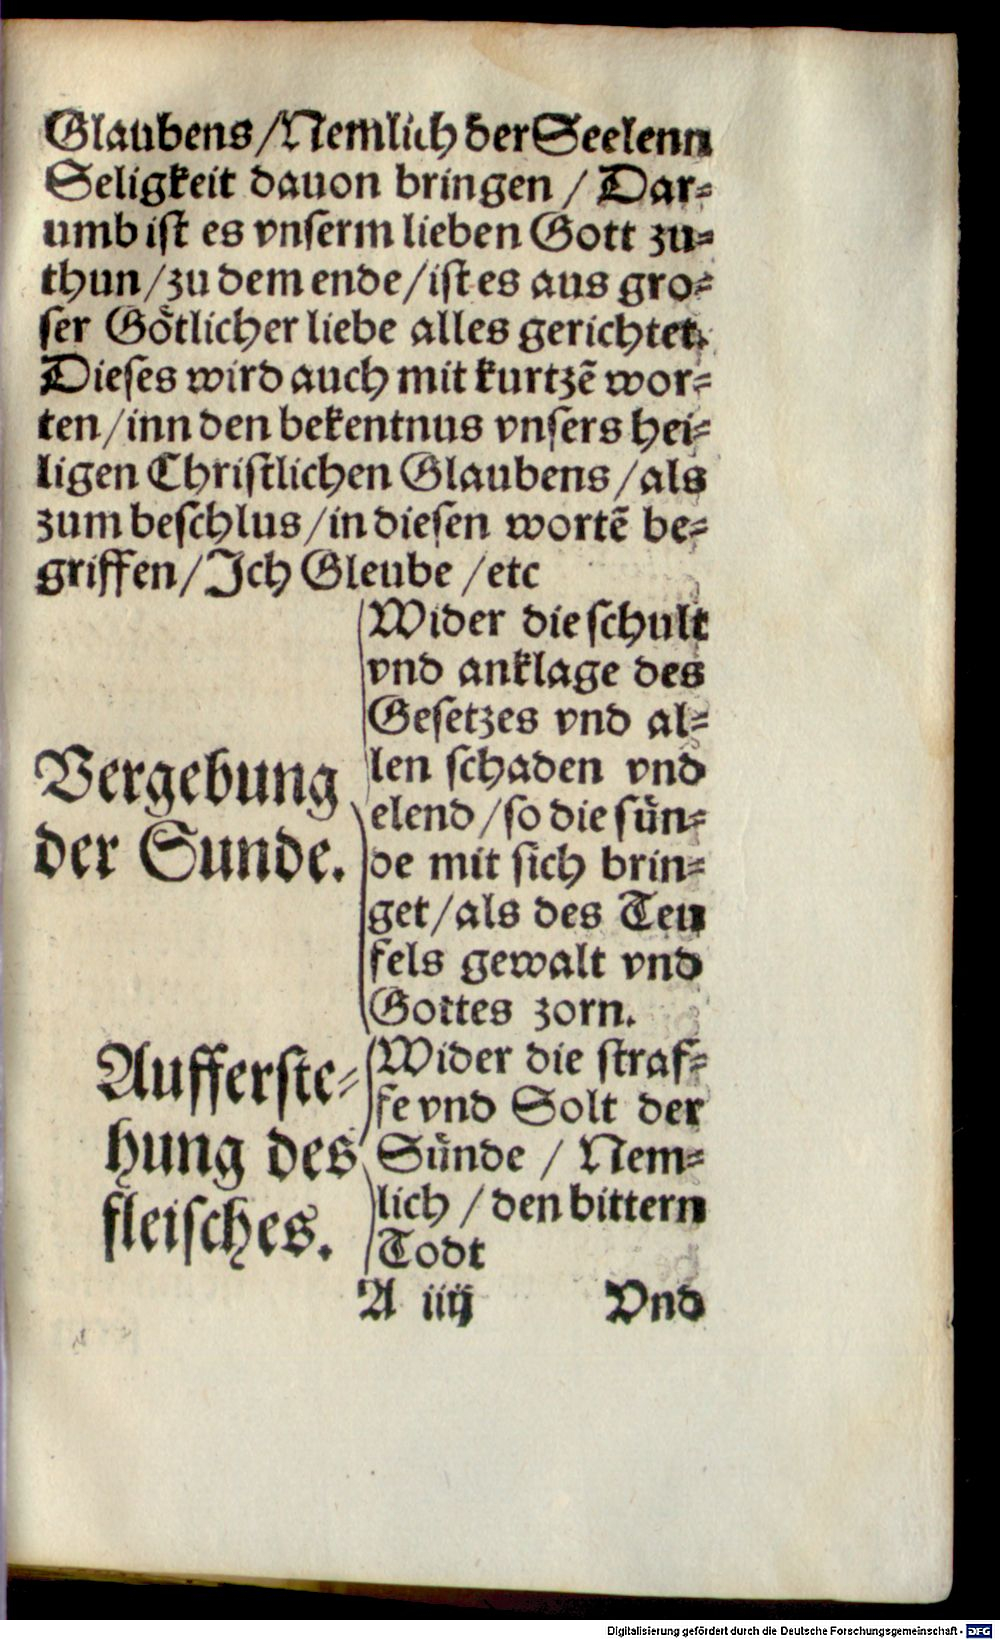 Glaubens /Nemlich der Seelenn
Seligkeit dauon bringen / Dar⸗
umb ist es vnserm lieben Gott zu⸗
thun /zu dem ende /ist es aus gro⸗
ser Goͤtlicher liebe alles gerichtet.
Dieses wird auch mit kurtzē wor⸗
ten /inn den bekentnus vnsers hei⸗
ligen Christlichen Glaubens /als
zum beschlus /in diesen wortē be⸗
griffen /Ich Gleube /etc
Vergebung
der Sunde.
Wider die schult
vnd anklage des
Gesetzes vnd al⸗
len schaden vnd
elend /so die suͤn⸗
de mit sich brin⸗
get /als des Teu
fels gewalt vnd
Gottes zorn.
Aufferste⸗
hung des
fleisches.
Wider die straf⸗
fe vnd Solt der
Suͤnde / Nem⸗
lich /den bittern
Todt
A iiij Vnd
Digitalisierung gefördert durch die Deutsche Forschungsgemeinschaft - DFG